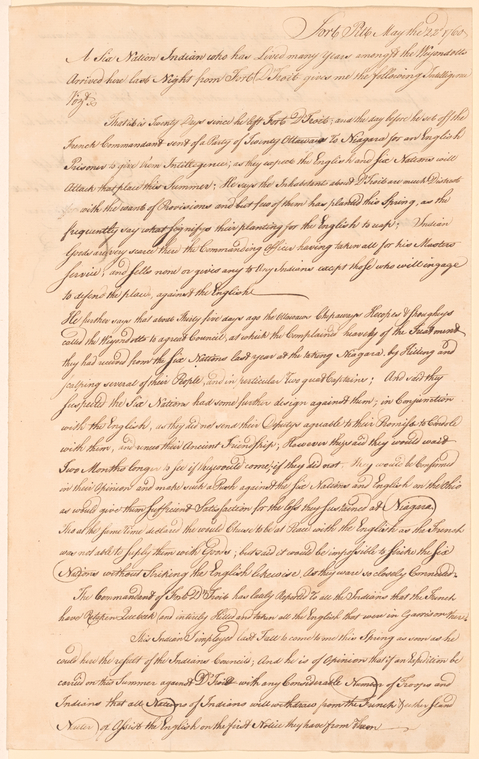 Fort Pitt May the 22d 1760
A Six Nation Indian who has Lived many Years amongst the Weyondotts
Arrived here last Night from Fort D'Troit gives me the following Intelligence
Viz
That it is Twenty Days since he left Fort D'Troit; and the day before he set of the
French Commandant sent of a Party of Twenty Ottawaes To Niagara for an English
Prisoner to give them Intelligence, as they expect the English and Six Nations will
Attack that place this Summer; He says the Inhabitants about D'Troit are much Distrest
with the want of Provisions and but few of them has planted this Spring, as they
frequently say what signifys their planting for the English to reap; Indian
Goods are very scarce there the Commanding Officer having taken all for his Masters
Service, and sells none or gives any to Any Indians except those who will ingage
to defend the place, against the English
He further says that about Thirty five days ago the Ottawaes Chipaways
called the Weyondotts to a great Council, at which they Complained heavely of the Treatment
they had received from the Six Nations last year at the taking Niagara, by Killing and
scalping several of their People, and in perticular Two great Captains; And said they
Suspected the Six Nations had some further design against them, in Conjunction
with the English, as they did not send their Deputys agreable to their Promise to Condole
with them, and renew their Ancient Friendship; However they said they would wait
Two Months longer to see if they would come; if they did not they would be Confirmed
in their Opinion and make such a Push against the Six Nations and English on the Ohio
as would give them Sufficient Satisfaction for the loss they Sustained at Niagara
Tho at the same time declared the would Chuse to be at Peace with the English as the French
was not able to supply them with Goods; but said it would be impossible to strike the Six
Nations without Striking the English likewise As they ware so closely Connected
The Commandant of Fort D'Troit has lately Reported To all the Indians that the French
have Retaken Quebeck and intirely Killed and taken all the English that were in Garrison there
This Indian I imployed last Fall to come to me this Spring as soon as he
could hear the result of the Indians Councils; And he is of Opinion that if an Expedition be
carried on this Summer against D'Troit with any Considerable Number of Troops and
Indians that all Nations of Indians will withdraw from the French & either stand
Neuter or Assist the English on the first Notice they have from Them